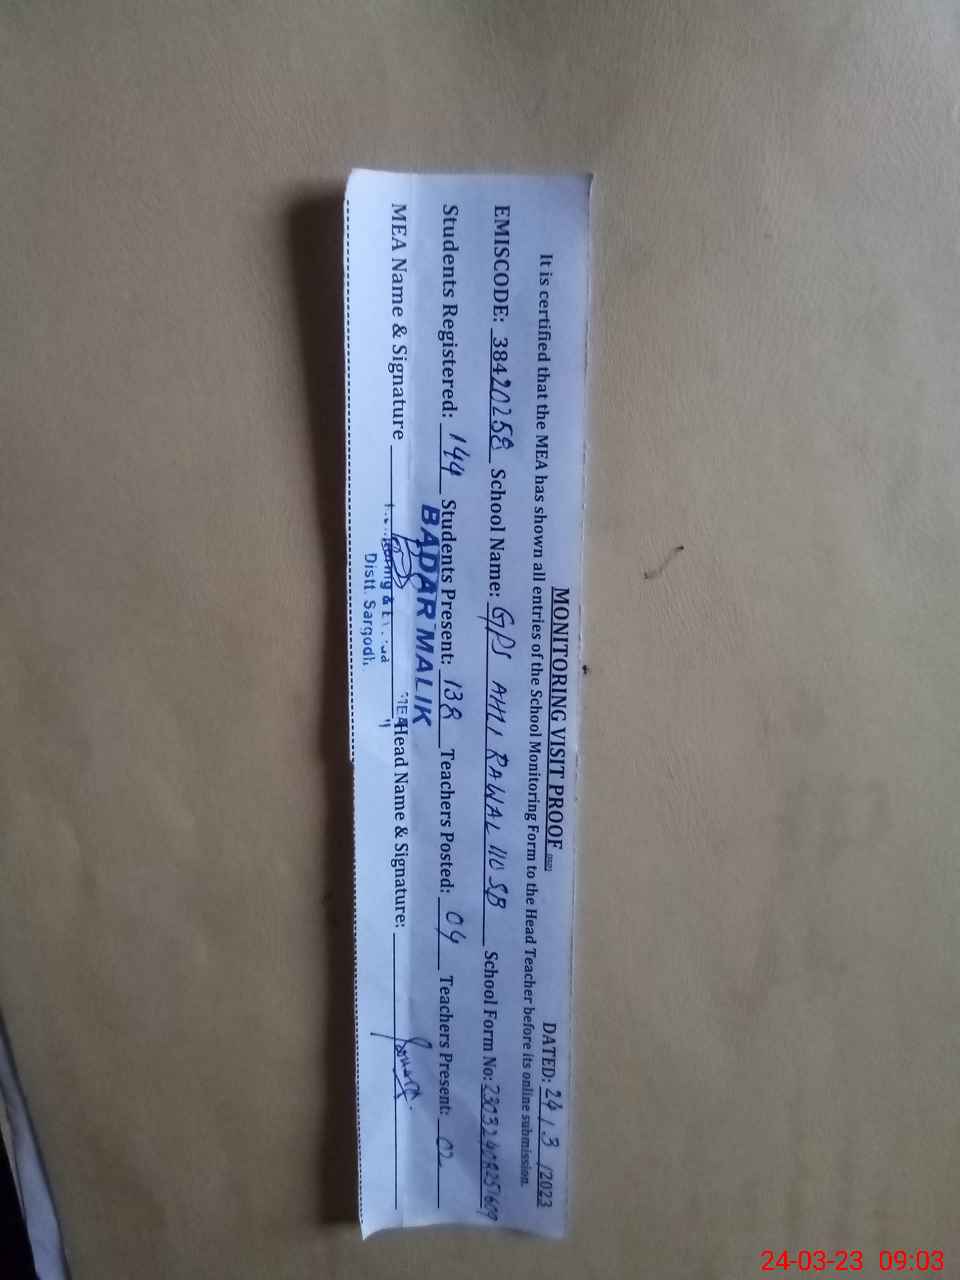 MONITORING VISIT PROOF
DATED: 24 / 3 /2023
It is certified that the MEA has shown all entries of the School Monitoring Form to the Head Teacher before its online submission.
EMISCODE: 38420258 School Name: GPS RAWAL 110 SB School Form No:
Students Registered: 144 Students Present: 138 Teachers Posted: 04 Teachers Present: 02
BADAR MALIK
MEA Name & Signature Head Name & Signature:
Distt. Sargodh
24-03-23 09:03